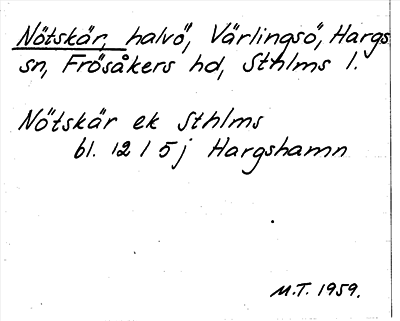 Nötskär, halvö, Värlingsö, Hargs
sn, Frösåkers hd, Sthlms l.
Nötskär ek Sthlms
bl. 12 I 5 j Hargshamn
M.T. 1959.